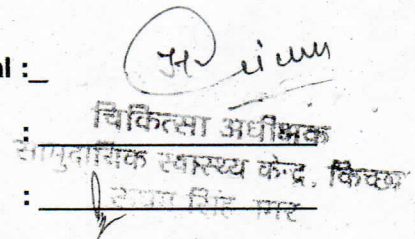 al :_
: चिकित्सा अधीक्षक
सामुदायिक स्वास्थ्य केन्द्र, किच्छा
: सिंह नगर